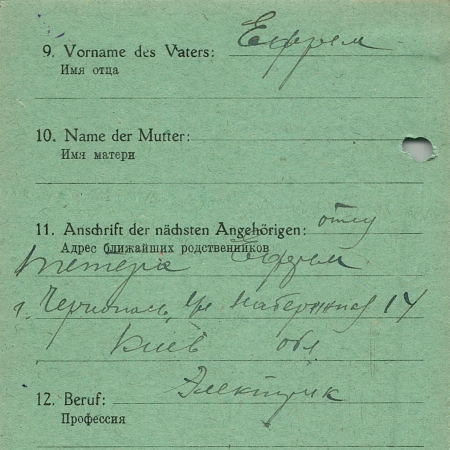 9. Vorname des Vaters: Ефрем
Имя отца
10. Name der Mutter:
Имя матери
11. Anschrift der nächsten Angehörigen: отцу
Адрес ближайших родственников
Тетеря Ефрем
г. Черкассы, ул Набережная 14
Киев обл
12. Beruf: Электрик
Профессия